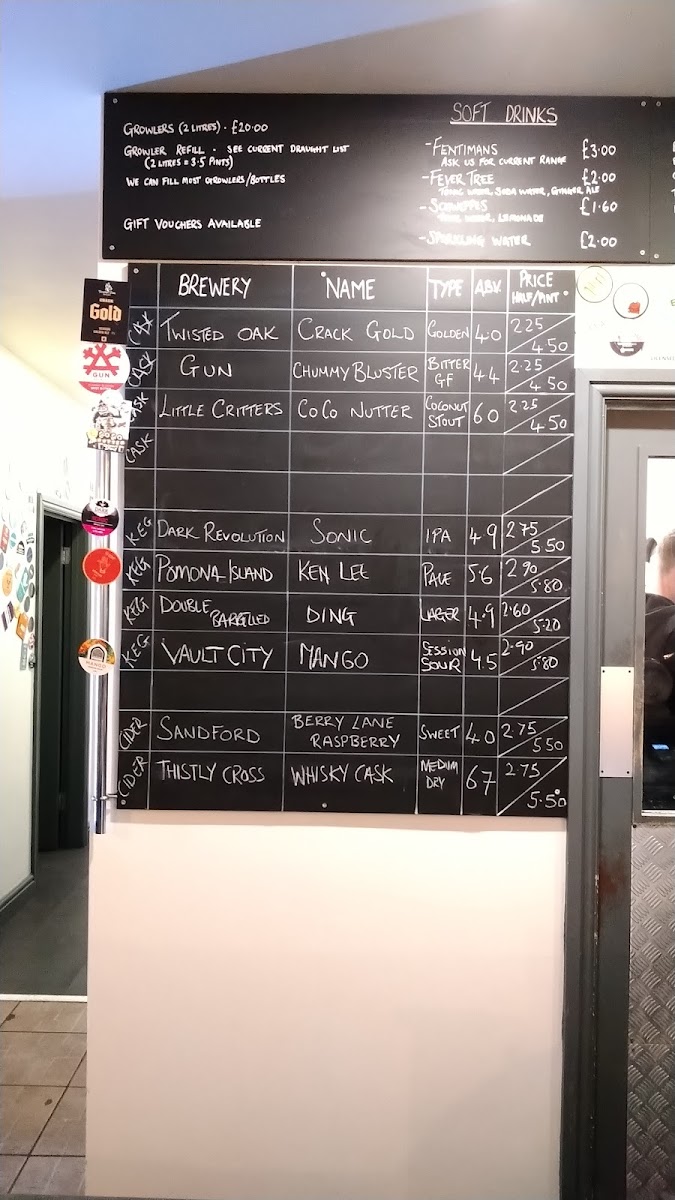 GROWLERS (2 LITRES) - £20.00
GROWLER REFILL - SEE CURRENT DRAUGHT LIST
(2 LITRES = 3.5 PINTS)
WE CAN FILL MOST GROWLERS/BOTTLES
GIFT VOUCHERS AVAILABLE
SOFT DRINKS
-FENTIMANS £3.00
ASK US FOR CURRENT RANGE
-FEVER TREE £2.00
TONIC WATER, SODA WATER, GINGER ALE
-SCHWEPPES £1.60
WATER, LEMONADE
-SPARKLING WATER £2.00
BREWERY NAME TYPE ABV. PRICE
HALF/PINT
CASK TWISTED OAK CRACK GOLD GOLDEN 4.0 2.25 4.50
CASK GUN CHUMMY BLUSTER BITTER GF 4.4 2.25 4.50
CASK LITTLE CRITTERS COCO NUTTER COCONUT STOUT 6.0 2.25 4.50
CASK
KEG DARK REVOLUTION SONIC IPA 4.9 2.75 5.50
KEG POMONA ISLAND KEN LEE PALE 5.6 2.90 5.80
KEG DOUBLE BARRELLED DING LAGER 4.9 2.60 5.20
KEG VAULT CITY MANGO SESSION SOUR 4.5 2.90 5.80
CIDER SANDFORD BERRY LANE RASPBERRY SWEET 4.0 2.75 5.50
CIDER THISTLY CROSS WHISKY CASK MEDIUM DRY 6.7 2.75 5.50
Gold
GUN
MANGO